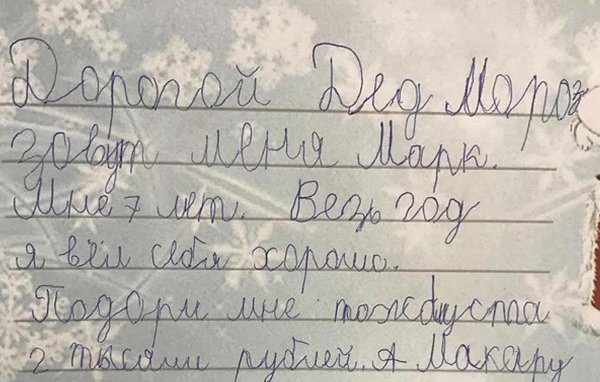 Дорогой Дед Мороз
зовут меня Марк.
Мне 7 лет. Везь год
я вёл себя хорошо.
Подари мне пожалуста
2 тысячи рублей. А Макару